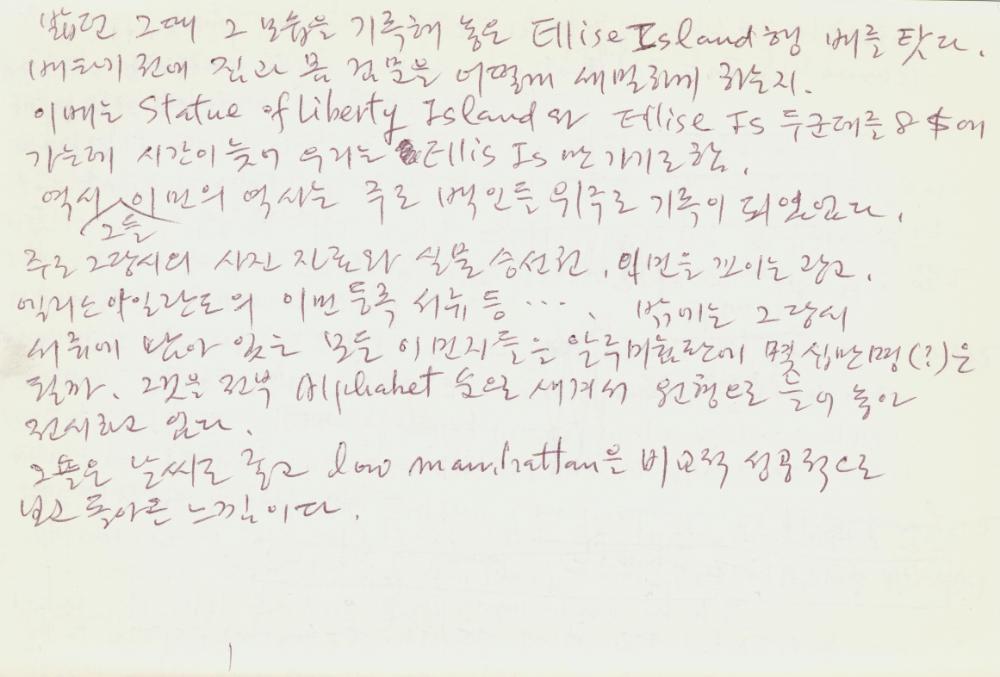 밟던 그때 그 모습을 기록해 놓은 Ellise Island행 배를 탓다.
배타기 전에 짐과 몸 검문을 어떻게 세밀하게 하는지.
이배는 Statue of Liberty Island 와 Ellise Is 두군데를 8 $에
가는데 시간이 늦어 우리는 Ellis Is 만 가기로 함.
역시 그들 이민의 역사는 주로 백인들 위주로 기록이 되었었다.
주로 그당시의 사진 자료와 실물 승선권, 이민을 꼬이는 광고,
엘리스아일란드의 이민 등록 서류 등 ···. 밖에는 그당시
서류에 남아 있는 모든 이민자들을 알루미늄판에 몇 십만명(?)은
될까. 그것을 전부 Alphabet 순으로 새겨서 원형으로 놓아
전시하고 있다.
오늘은 날씨도 좋고 low manhattan을 비교적 성공적으로
보고 돌아온 느낌이다.